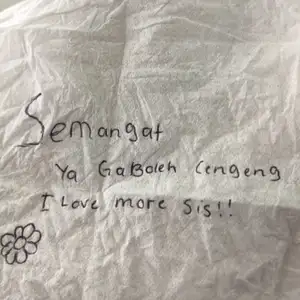 Semangat
Ya GaBoleh Cengeng
I Love more sis!!